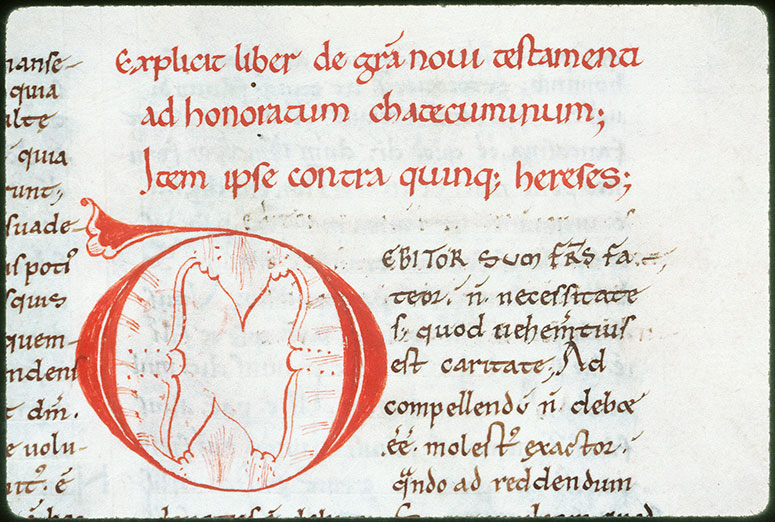 nanse-
quia
alte
quia
runt;
suade-
us poti᾽
squis
quem-
ndens
t dm̄.
e uolu-
ē
Explicit liber de grā noui testamenti
ad honoratum chatecuminum;
Item ipse contra quinq; hereses;
DEBITOR SUM FR̄S FA-
teor. n̄. necessitate
s; quod uehem̄tius
est caritate; Ad
compellendū n̄ debeo
eē. molest᾽ exactor.
qn̄do ad reddendum